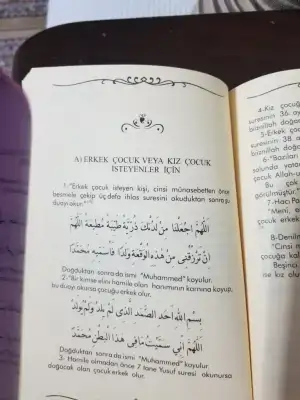 A) ERKEK ÇOCUK VEYA KIZ ÇOCUK
İSTEYENLER İÇİN
1-"Erkek çocuk isteyen kişi, cinsi münasebetten önce
besmele çekip üç defa ihlas suresini okuduktan sonra şu
duayı okur."
اَللّٰهُمَّ اجْعَلْنَا مِنْ لَدُنْكَ ذُرِّيَّةً طَيِّبَةً مُطِيعَةً اَللّٰهُمَّ
اِنْ تَرْزُقْنِي مِنْ هٰذِهِ الْوُقْعَةِ وَلَدًا فَاُسَمِّيهِ مُحَمَّدًا
Doğduktan sonra da ismi "Muhammed" koyulur.
2-"Bir kimse elini hamile olan hanımının karnına koyup,
bu duayı okursa çocuğu erkek olur.
بِسْمِ اللّٰهِ اَحَدِ الصَّمَدِ الَّذِى لَمْ يَلِدْ وَلَمْ يُولَدْ
اَللّٰهُمَّ اِنِّى سَمَّيْتُ مَا فِى هٰذَا الْبَطْنِ مُحَمَّدً
Doğduktan sonra da ismi "Muhammed" koyulur.
3- Hamile olmadan önce 7 tane Yusuf suresi okunursa
doğacak olan çocuk erkek olur.
4-Kız çocuğu
suresinin 36. ay
biiznillah doğa
5-Erkek çoc
suresinin 38.
biiznillah doğa
6-"Bazıları
çocuk Allah-u
Bu çok
görülmüştür."
7-Hacı Paş
"Meni,
çocuk erkek
8-Denilm
"Cinsi
ne kız olu